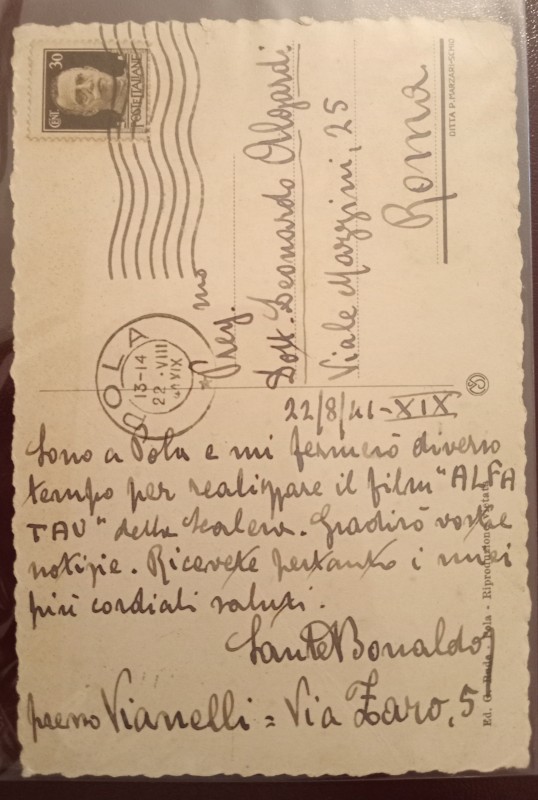 22/8/41-XIX
Sono a Pola e mi fermerò diverso
tempo per realizzare il film "ALFA
TAU" della Scalera. Gradirò vostre
notizie. Ricevete pertanto i miei
più cordiali saluti.
Sante Bonaldo
presso Vianelli = Via Zaro, 5
CENT. 30
POSTE ITALIANE
POLA
13-14
22·VIII
XIX
Preg.mo
Dott. Leonardo Algardi
Viale Mazzini, 25
Roma
DITTA P. MARZARI-SCHIO
Ed. G. Pola - Riproduzione vietata